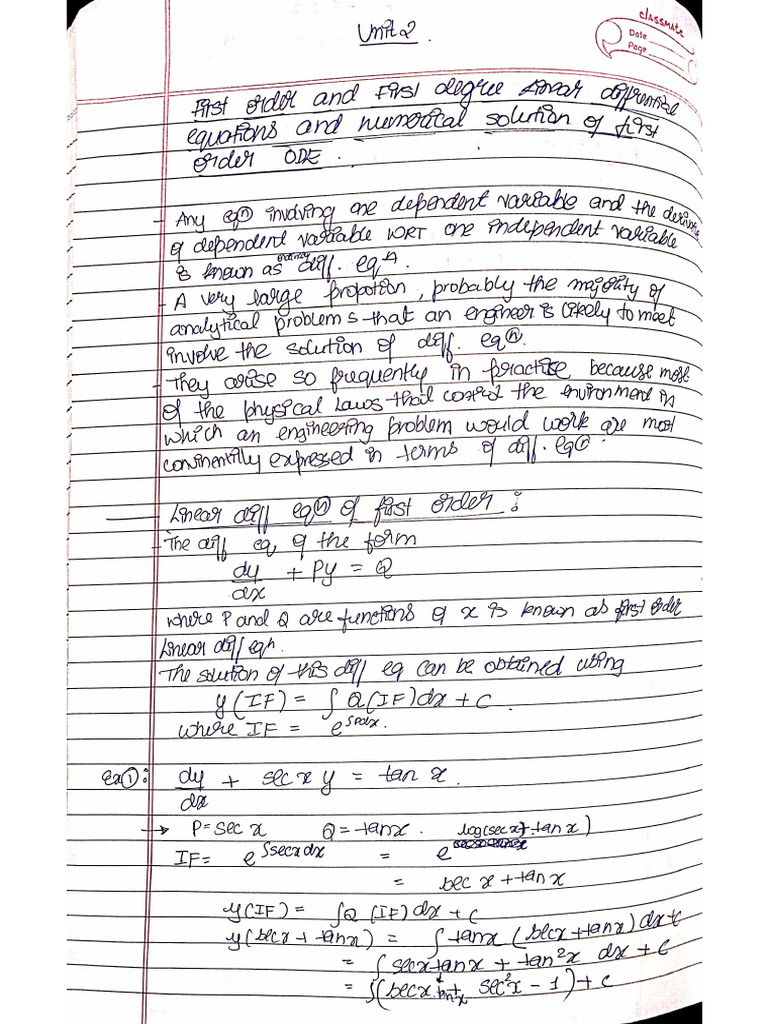 classmate
Date
Page
Unit 2.
First order and First degree Linear differential
equations and numerical solution of first
order ODE.
- Any eqⓝ involving one dependent variable and the derivative
of dependent variable WRT one independent variable
is known as ordinary diff. eqⁿ.
- A very large propotion, probably the majority of
analytical problems that an engineer is likely to meet
involve the solution of diff. eqⓝ.
- They arise so frequently in practise, because most
of the physical Laws that control the environment in
which an engineering problem would work are most
convinentilly expressed in terms of diff. eqⓝ.
- Linear diff eqⓝ of first order :
- The diff eq. of the form
dy/dx + Py = Q
where P and Q are functions of x is known as first order
Linear diff eqⁿ.
The solution of this diff eq can be obtained using
y(IF) = ∫Q(IF)dx + C.
where IF = e^∫Pdx.
Ex①: dy/dx + sec x y = tan x.
→ P = sec x Q = tanx.
IF = e^∫secxdx = e^log(secx + tanx)
= sec x + tanx
y(IF) = ∫Q (IF) dx + C
y(secx + tanx) = ∫tanx (secx + tanx) dx + C
= ∫secx tanx + tan²x dx + C
= ∫(secx tanx + sec²x - 1) + C